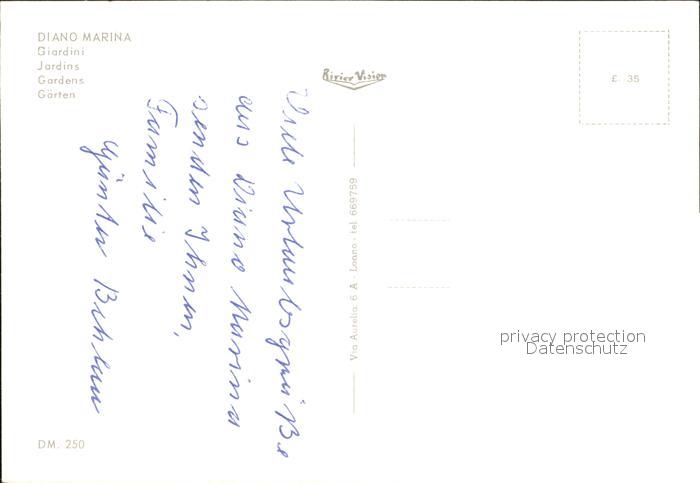 DIANO MARINA
Giardini
Jardins
Gardens
Gärten
Rivier Vision
£. 35
Viele Urlaubsgrüße
aus Diano Marina
senden Ihnen,
Familie
Günter
Via Aurelia: 6 A - Loano - tel. 669759
privacy protection
Datenschutz
DM. 250